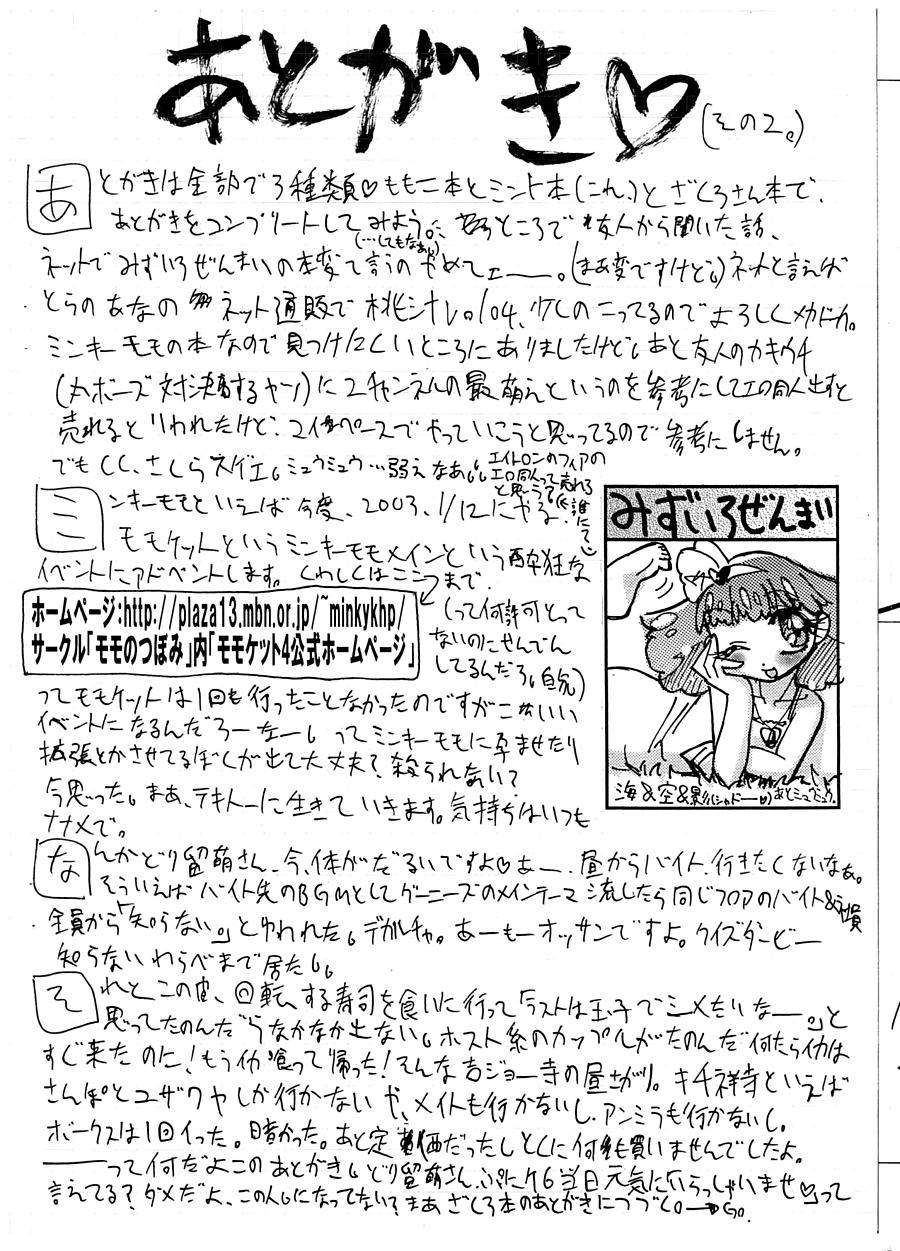 あとがき♡(その2。)
あとがきは全部で3種類♡ももこ本とミント本(これ)とざくろさん本で、
あとがきをコンプリートしてみよう。ところで友人から聞いた話、
(…してもなぁ)
ネットでみずいろぜんまいの本変て言うのやめてェーー。(まあ変ですけど)ネットと言えば
とらのあなのネット通販で桃汁Vol04、少しのこってるのでよろしくメカドカ。
ミンキーモモの本なので見つけにくいところにありましたけど。あと友人のカキウチ
に2チャンネルの最萌えというのを参考にしてエロ同人出すと
売れるといわれたけど、マイペースでやっていこうと思ってるので参考にしません。
でもCC.さくらスゲエ。ミュウミュウ…弱えなぁ。
エイトロンのフィアの
エロ同人って売れる
と思う?
ミンキーモモといえば今度、2003.1/12にやる
モモケットというミンキーモモメインという酔狂な
イベントにアドベントします。くわしくはここまで。
ホームページ:http://plaza13.mbn.or.jp/~minkykhp/
サークル「モモのつぼみ」内「モモケット4公式ホームページ」
(って何許可とって
ないのにせんでん
してるんだろ。自分)
ってモモケットは1回も行ったことなかったのですがこれいい
イベントになるんだろーなー。ってミンキーモモに孕ませたり
拡張とかさせてるぼくが出て大丈夫?殺られない?
今思った。まあ、テキトーに生きていきます。気持ちはいつも
ナナメで。
みずいろぜんまい
海&空&影(シャドー♡)あとミュウミュウ。
なんかどり留萌さん、今、体がだるいですよ♡あー、昼からバイト、行きたくないなぁ。
そういえばバイト先のBGMとしてグーニーズのメインテーマ流したら同じフロアのバイト&社員
全員から「知らない。」とゆわれた。デカルチャ。あーもーオッサンですよ。クイズダービー
知らないわらべまで居たし。
それとこの間、回転する寿司を食いに行って「ラストは玉子でシメたいなー。」と
思ってたのんだらなかなか出ない。ホスト系のカップルがたのんだ何たらイカは
すぐ来たのに!もうイカ喰って帰った!そんな吉ジョー寺の昼さがり。キチ祥寺といえば
さんぽとユザワヤしか行かないや、メイトも行かないし、アンミラも行かないし。
ボークスは1回イった。暗かった。あと定価だったしとくに何も買いませんでしたよ。
ーーって何だよこのあとがき。どり留萌さん、ぷにケ6当日元気に「いらっしゃいませ♡」って
言えてる?ダメだよ、この人。になってない?まあざくろ本のあとがきにつづく。→Go.